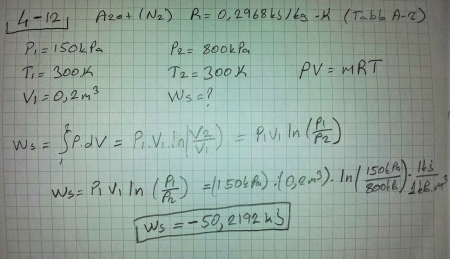 4-12 Azot (N2) R = 0,2968 kJ/kg-K (Tablo A-2)
P1 = 150kPa P2 = 800kPa
T1 = 300K T2 = 300K PV = mRT
V1 = 0,2 m³ Ws = ?
Ws = ∫₁² P.dV = P1.V1.ln(V2/V1) = P1V1 ln (P1/P2)
Ws = P1 V1 ln (P1/P2) = (150kPa).(0,2m³).ln(150kPa/800kPa).1kJ/1kPa.m³
Ws = -50,2192 kJ